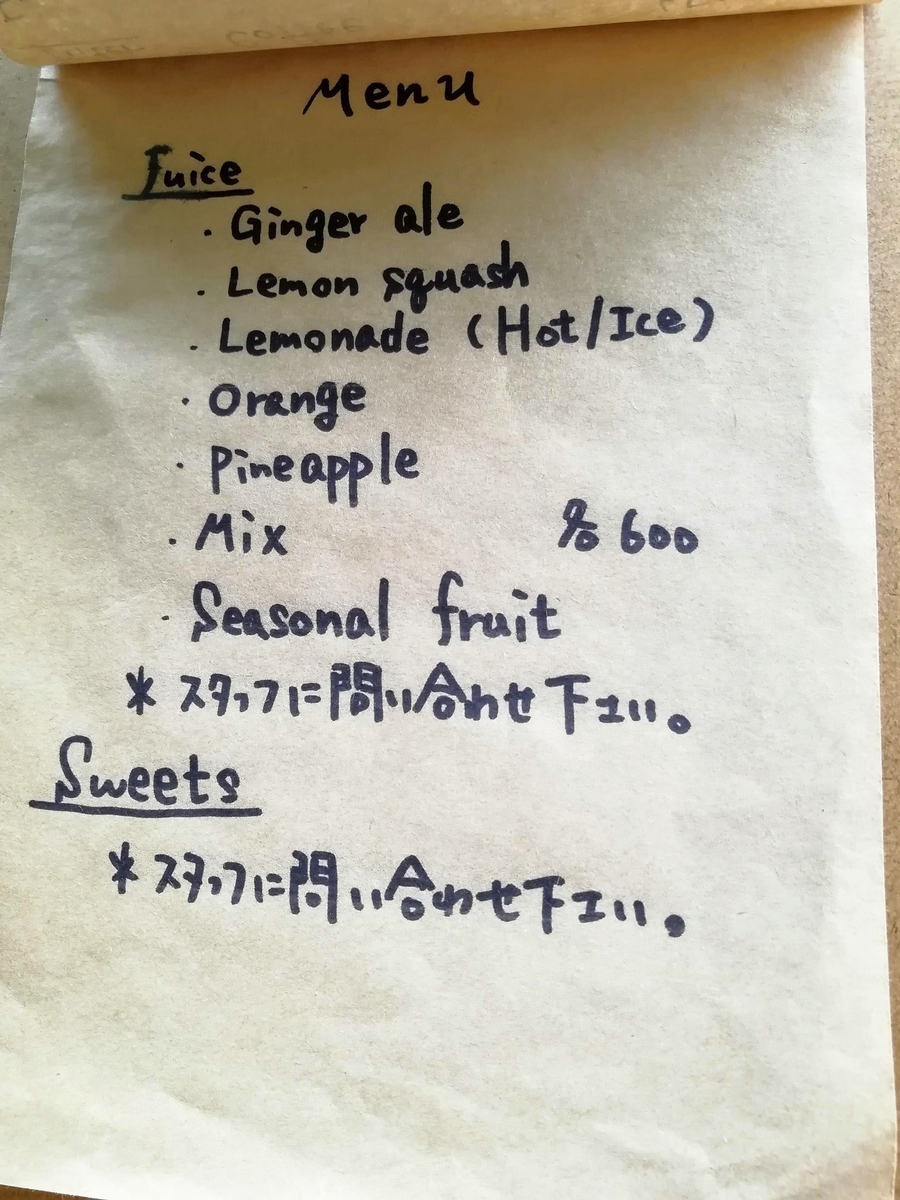 Menu
Juice
・Ginger ale
・Lemon squash
・Lemonade (Hot/Ice)
・Orange
・Pineapple
・Mix 各600
・Seasonal fruit
*スタッフに問い合わせ下エい。
Sweets
*スタッフに問い合わせ下エい。